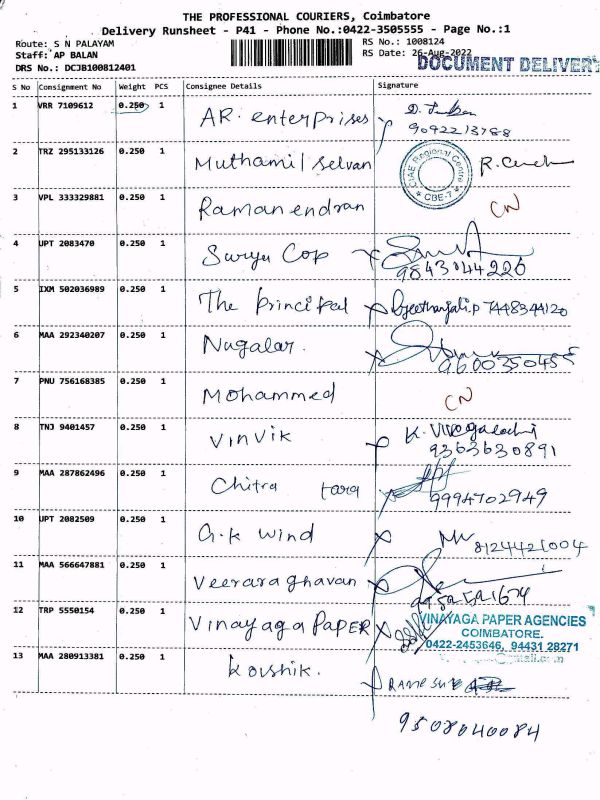 THE PROFESSIONAL COURIERS, Coimbatore
Delivery Runsheet - P41 - Phone No.:0422-3505555 - Page No.:1
Route: S N PALAYAM RS No.: 1008124
Staff: AP BALAN RS Date: 26-Aug-2022
DOCUMENT DELIVERY
DRS No.: DCJB100812401
S No Consignment No Weight PCS Consignee Details Signature
1 VRR 7109612 0.250 1 AR. enterprises
9092213788
2 TRZ 295133126 0.250 1 Muthamil selvan CIAE Regional Centre * CBE-7 *
3 VPL 333329881 0.250 1 Raman endran CN
4 UPT 2083470 0.250 1 Surya Cop
9843044226
5 IXM 502036989 0.250 1 The principal 7448344120
6 MAA 292340207 0.250 1 Nagalar.
9600350455
7 PNU 756168385 0.250 1 Mohammed CN
8 TNJ 9401457 0.250 1 Vinvik
9363630891
9 MAA 287862496 0.250 1 Chitra tara
9994702949
10 UPT 2082509 0.250 1 G.K wind
8124421004
11 MAA 566647881 0.250 1 Veeraraghavan
12 TRP 5550154 0.250 1 Vinayaga PAPER VINAYAGA PAPER AGENCIES
COIMBATORE.
0422-2453646, 94431 28271
13 MAA 280913381 0.250 1 Koushik. RAMESH
9508040084